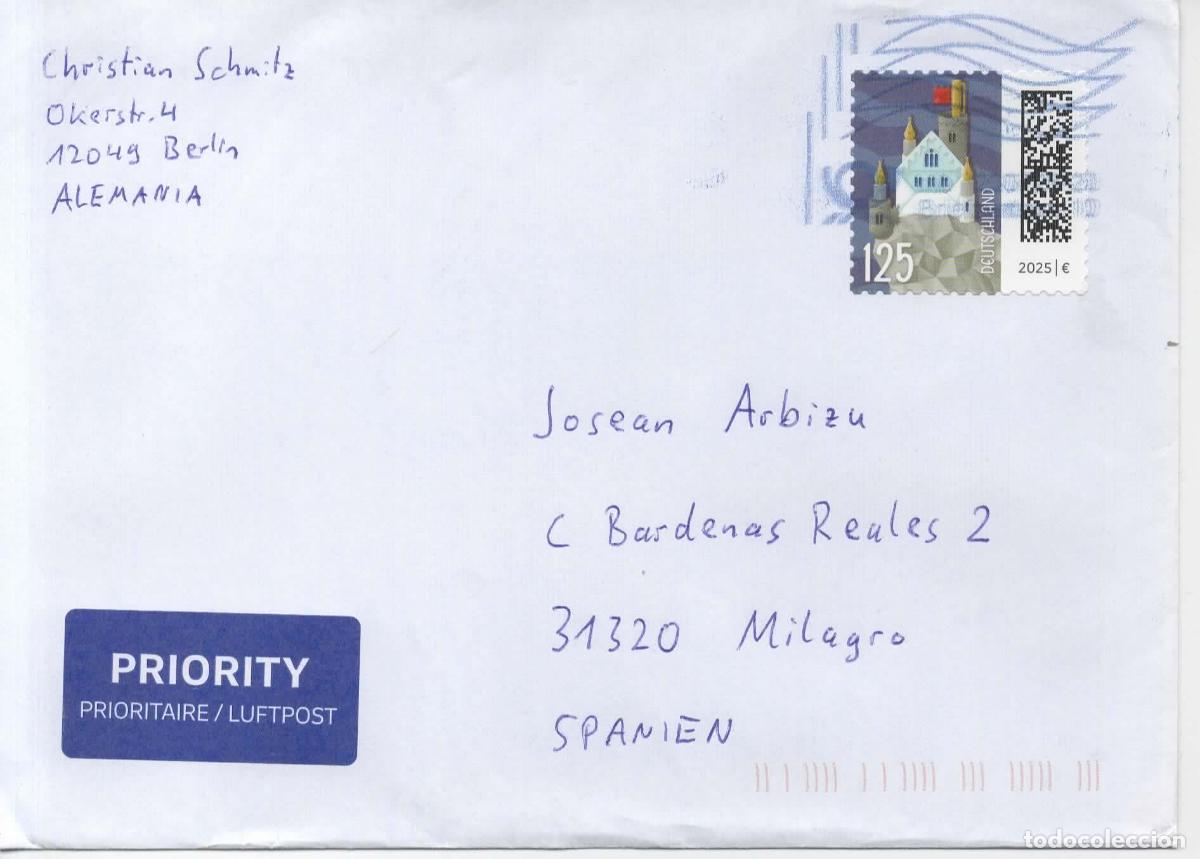 Christian Schmitz
Okerstr. 4
12049 Berlin
ALEMANIA
125
DEUTSCHLAND
2025 | €
Josean Arbizu
C Bardenas Reales 2
31320 Milagro
SPANIEN
PRIORITY
PRIORITAIRE / LUFTPOST
todocoleccion